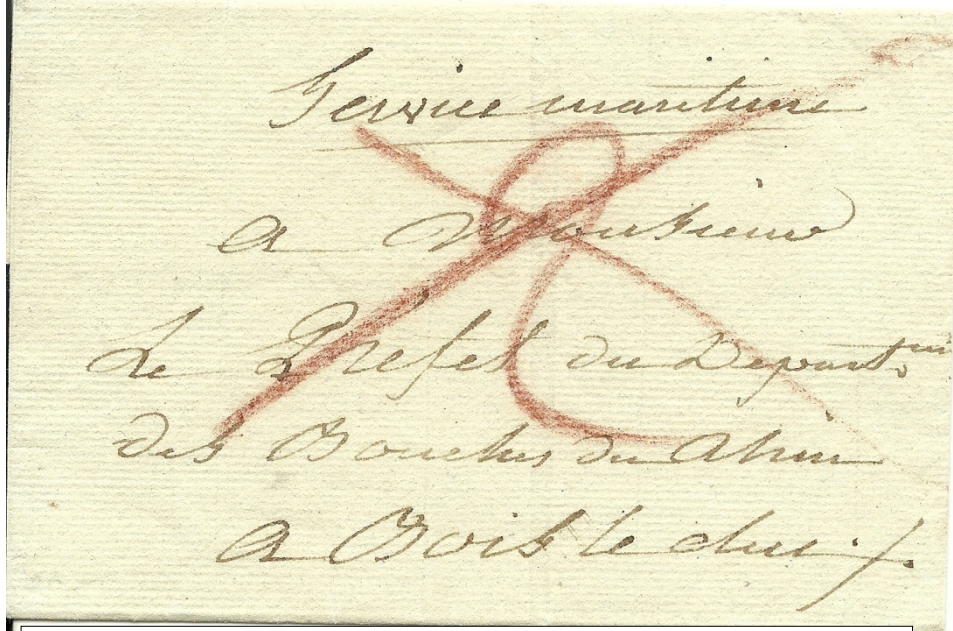 Service maritime
a Monsieur
Le Préfet du Departmt.
des Bouches du Rhin
a Bois le duc